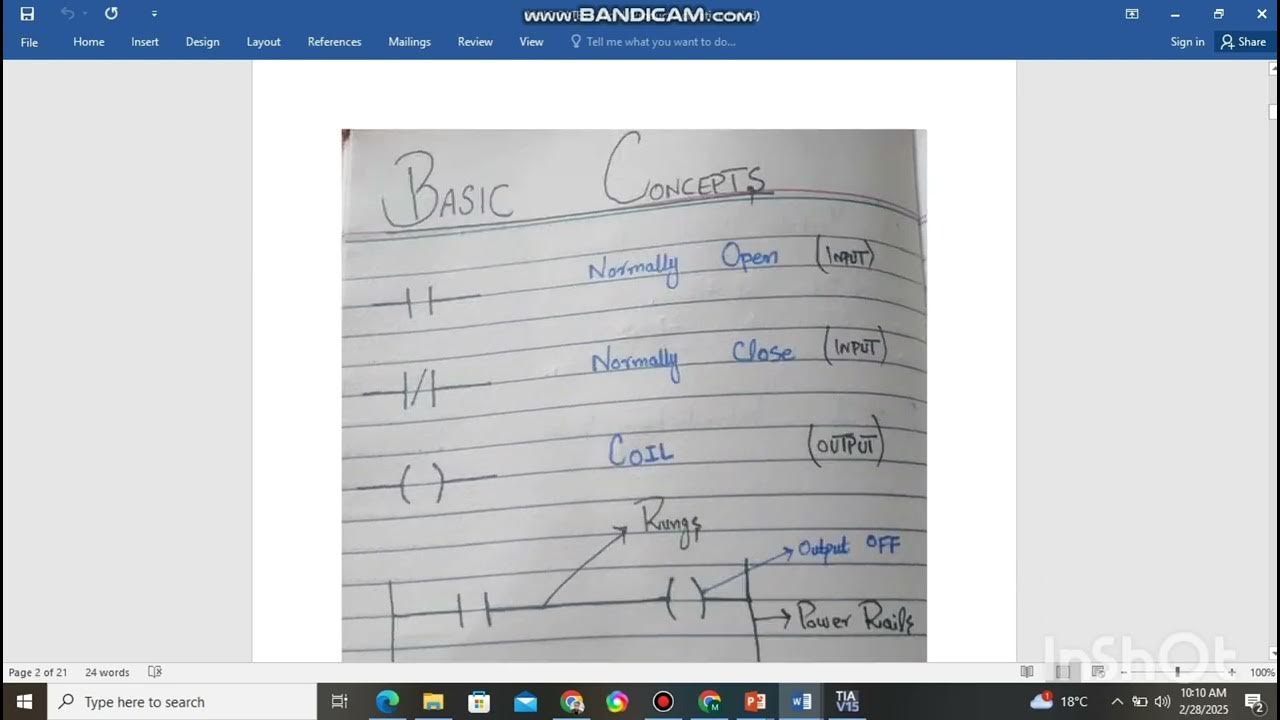 www.BANDICAM.com
File Home Insert Design Layout References Mailings Review View Tell me what you want to do... Sign in Share
BASIC CONCEPTS
Normally Open (INPUT)
Normally Close (INPUT)
COIL (OUTPUT)
Rungs
Output OFF
Power Rails
InShOt
Page 2 of 21 24 words 100%
Type here to search
TIA
V15
1
18°C
10:10 AM
2/28/2025
2